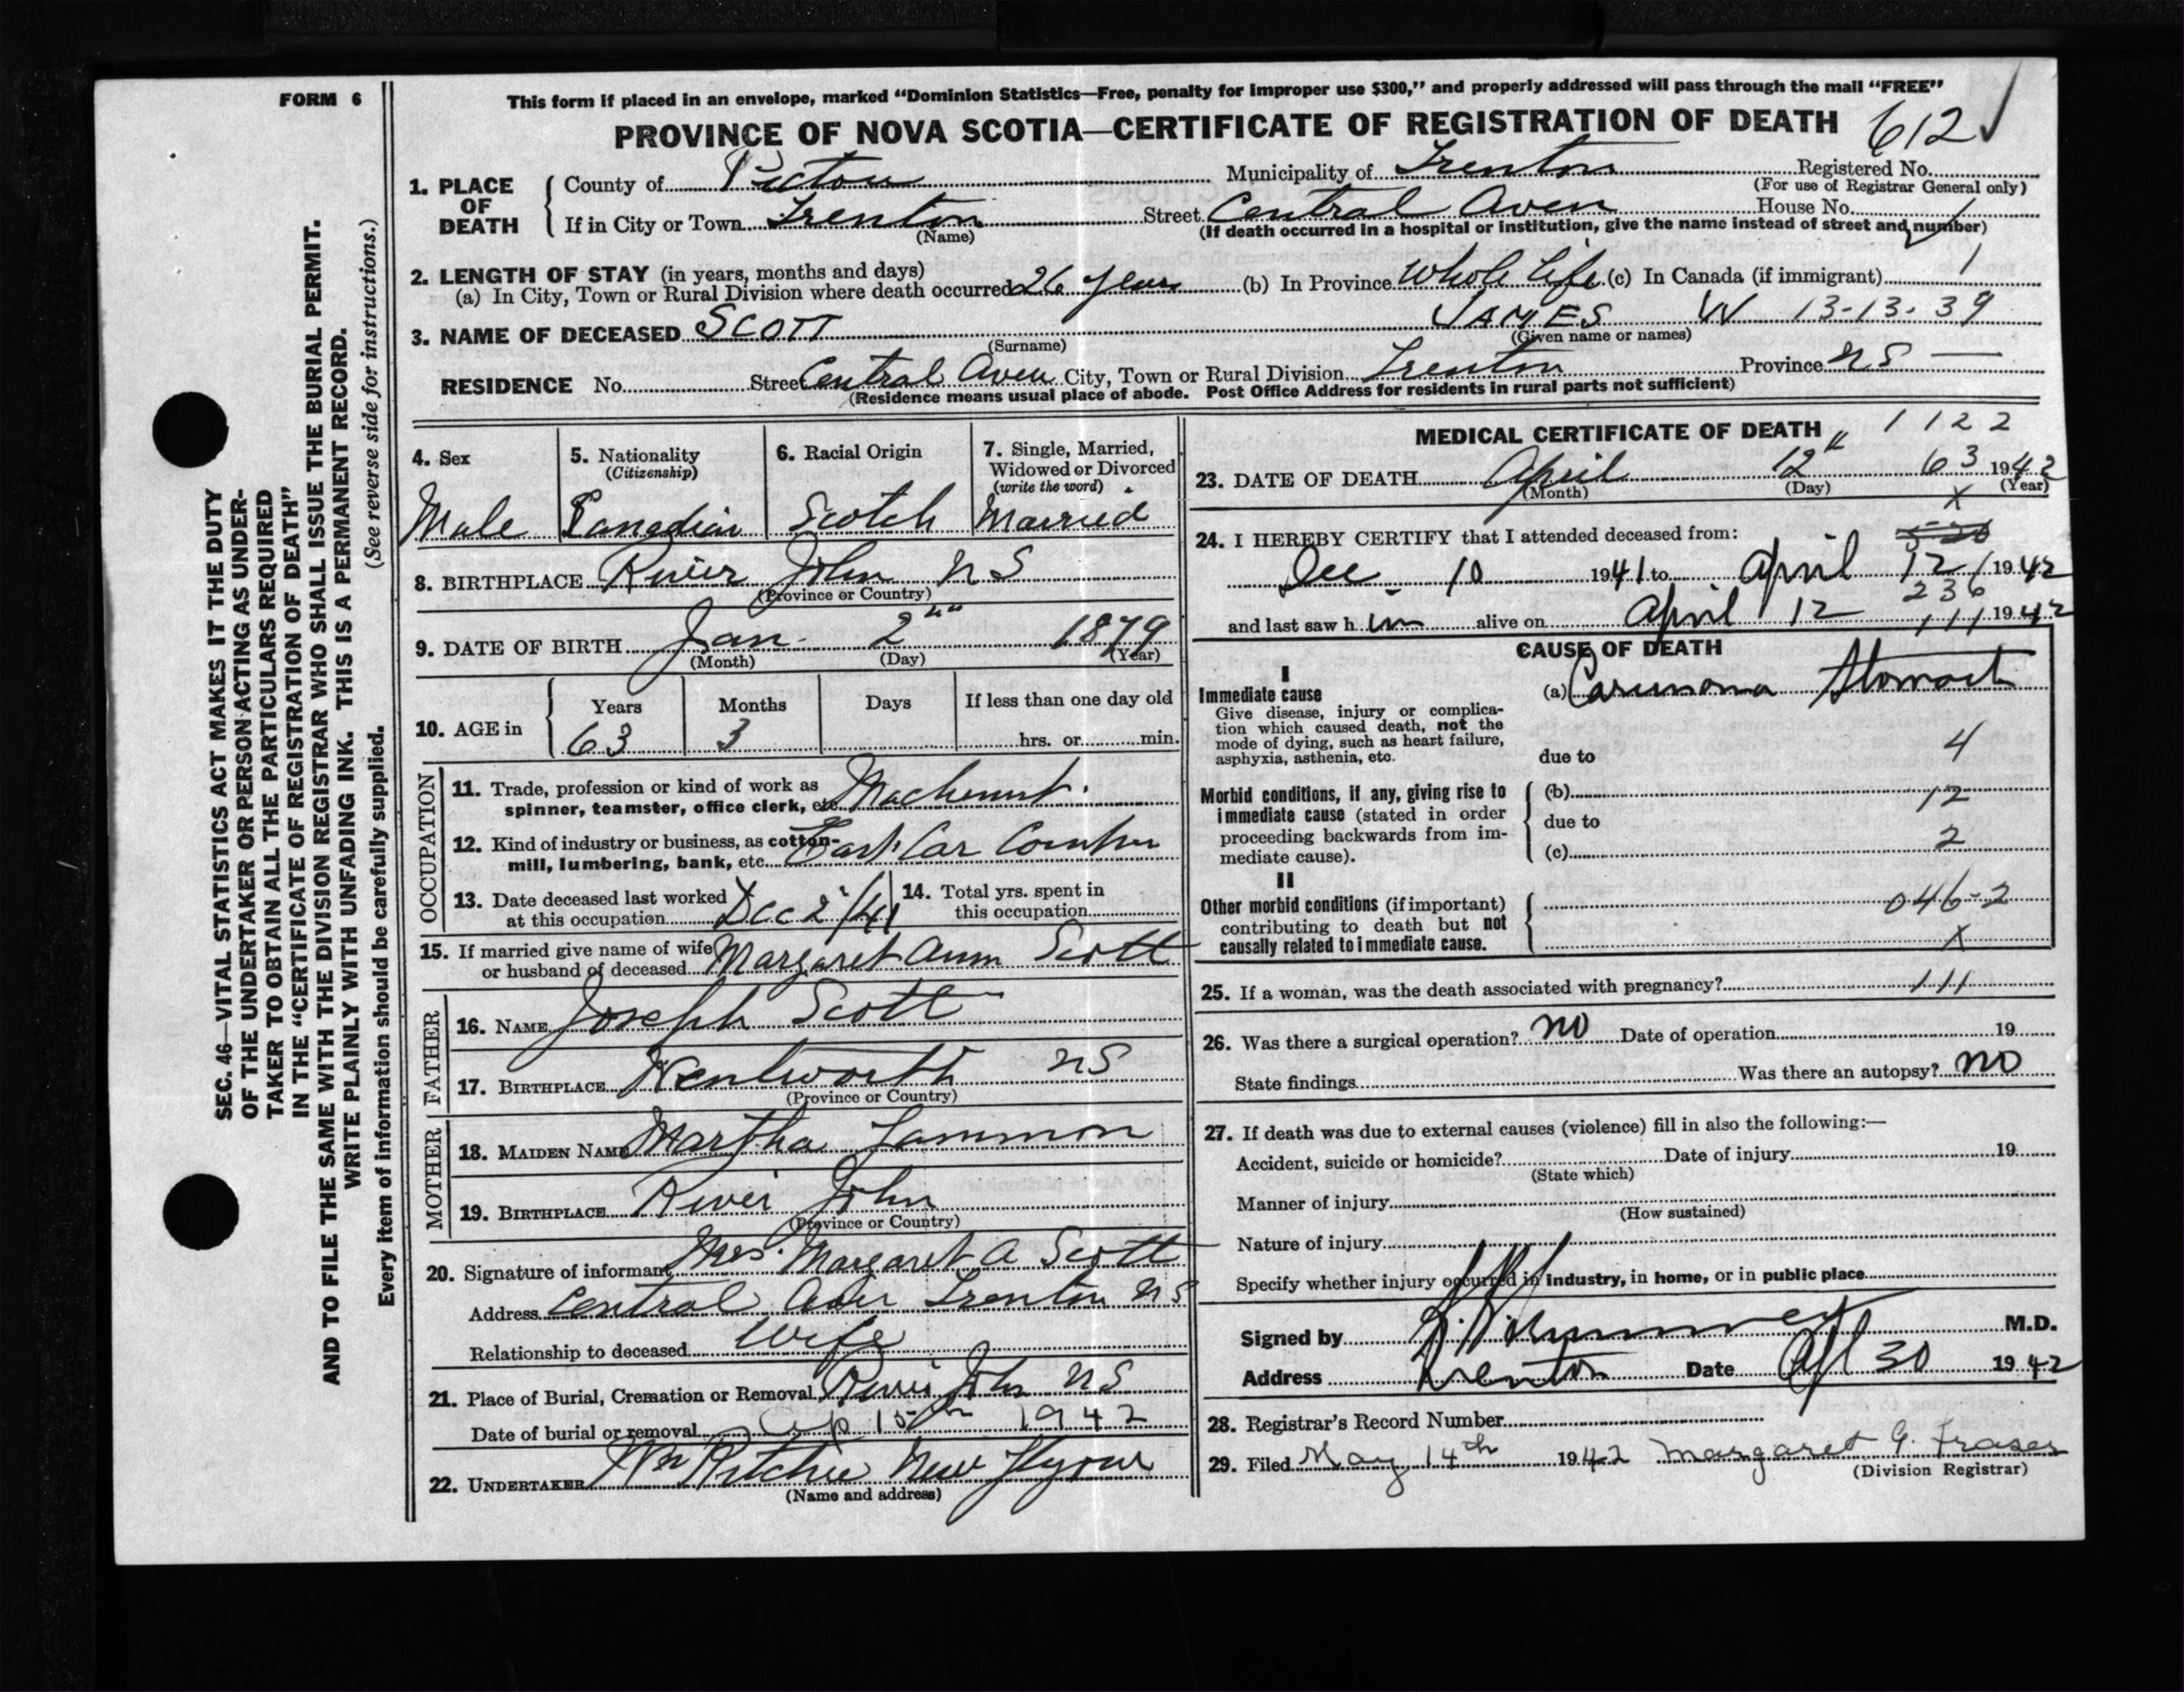 FORM 6
This form if placed in an envelope, marked “Dominion Statistics—Free, penalty for improper use $300,” and properly addressed will pass through the mail “FREE”
PROVINCE OF NOVA SCOTIA—CERTIFICATE OF REGISTRATION OF DEATH 612
1. PLACE OF DEATH
County of Pictou Municipality of Trenton Registered No.
(For use of Registrar General only)
If in City or Town Trenton Street Central Aven House No.
(Name) (If death occurred in a hospital or institution, give the name instead of street and number)
2. LENGTH OF STAY (in years, months and days)
(a) In City, Town or Rural Division where death occurred 26 years (b) In Province Whole life (c) In Canada (if immigrant) 1
3. NAME OF DECEASED SCOTT JAMES W 13-13-39
(Surname) (Given name or names)
RESIDENCE No. Street Central Aven City, Town or Rural Division Trenton Province NS
(Residence means usual place of abode. Post Office Address for residents in rural parts not sufficient)
4. Sex
Male
5. Nationality
(Citizenship)
Canadian
6. Racial Origin
Scotch
7. Single, Married,
Widowed or Divorced
(write the word)
Married
8. BIRTHPLACE River John NS
(Province or Country)
9. DATE OF BIRTH Jan. 2" 1879
(Month) (Day) (Year)
10. AGE in
Years Months Days If less than one day old
63 3 hrs. or min.
OCCUPATION
11. Trade, profession or kind of work as
spinner, teamster, office clerk, etc. Machinist.
12. Kind of industry or business, as cotton-
mill, lumbering, bank, etc. East. Car
13. Date deceased last worked
at this occupation Dec 2/41
14. Total yrs. spent in
this occupation
15. If married give name of wife
or husband of deceased Margaret Ann Scott
FATHER
16. NAME Joseph Scott
17. BIRTHPLACE Wentworth NS
(Province or Country)
MOTHER
18. MAIDEN NAME Martha Lammon
19. BIRTHPLACE River John
(Province or Country)
20. Signature of informant Mrs. Margaret A Scott
Address Central Aver Trenton NS
Relationship to deceased Wife
21. Place of Burial, Cremation or Removal River John NS
Date of burial or removal Ap 15th 1942
22. UNDERTAKER Wm Ritchie New
(Name and address)
MEDICAL CERTIFICATE OF DEATH 1122
23. DATE OF DEATH April 12th 63 1942
(Month) (Day) (Year)
X
24. I HEREBY CERTIFY that I attended deceased from:
Dec 10 1941 to April 12 1942
236
and last saw h im alive on April 12 1942
111
CAUSE OF DEATH
I
Immediate cause
Give disease, injury or complica-
tion which caused death, not the
mode of dying, such as heart failure,
asphyxia, asthenia, etc.
(a) Carcinoma Stomach
due to 4
Morbid conditions, if any, giving rise to
immediate cause (stated in order
proceeding backwards from im-
mediate cause).
(b) 12
due to
(c) 2
II
Other morbid conditions (if important)
contributing to death but not
causally related to immediate cause.
046-2
X
25. If a woman, was the death associated with pregnancy? 111
26. Was there a surgical operation? no Date of operation 19
State findings Was there an autopsy? no
27. If death was due to external causes (violence) fill in also the following:—
Accident, suicide or homicide? Date of injury 19
(State which)
Manner of injury
(How sustained)
Nature of injury
Specify whether injury occurred in industry, in home, or in public place
Signed by M.D.
Address Trenton Date Apl 30 1942
28. Registrar's Record Number
29. Filed May 14th 1942 Margaret G. Fraser
(Division Registrar)
SEC. 46—VITAL STATISTICS ACT MAKES IT THE DUTY
OF THE UNDERTAKER OR PERSON ACTING AS UNDER-
TAKER TO OBTAIN ALL THE PARTICULARS REQUIRED
IN THE “CERTIFICATE OF REGISTRATION OF DEATH”
AND TO FILE THE SAME WITH THE DIVISION REGISTRAR WHO SHALL ISSUE THE BURIAL PERMIT.
WRITE PLAINLY WITH UNFADING INK. THIS IS A PERMANENT RECORD.
(See reverse side for instructions.)
Every item of information should be carefully supplied.